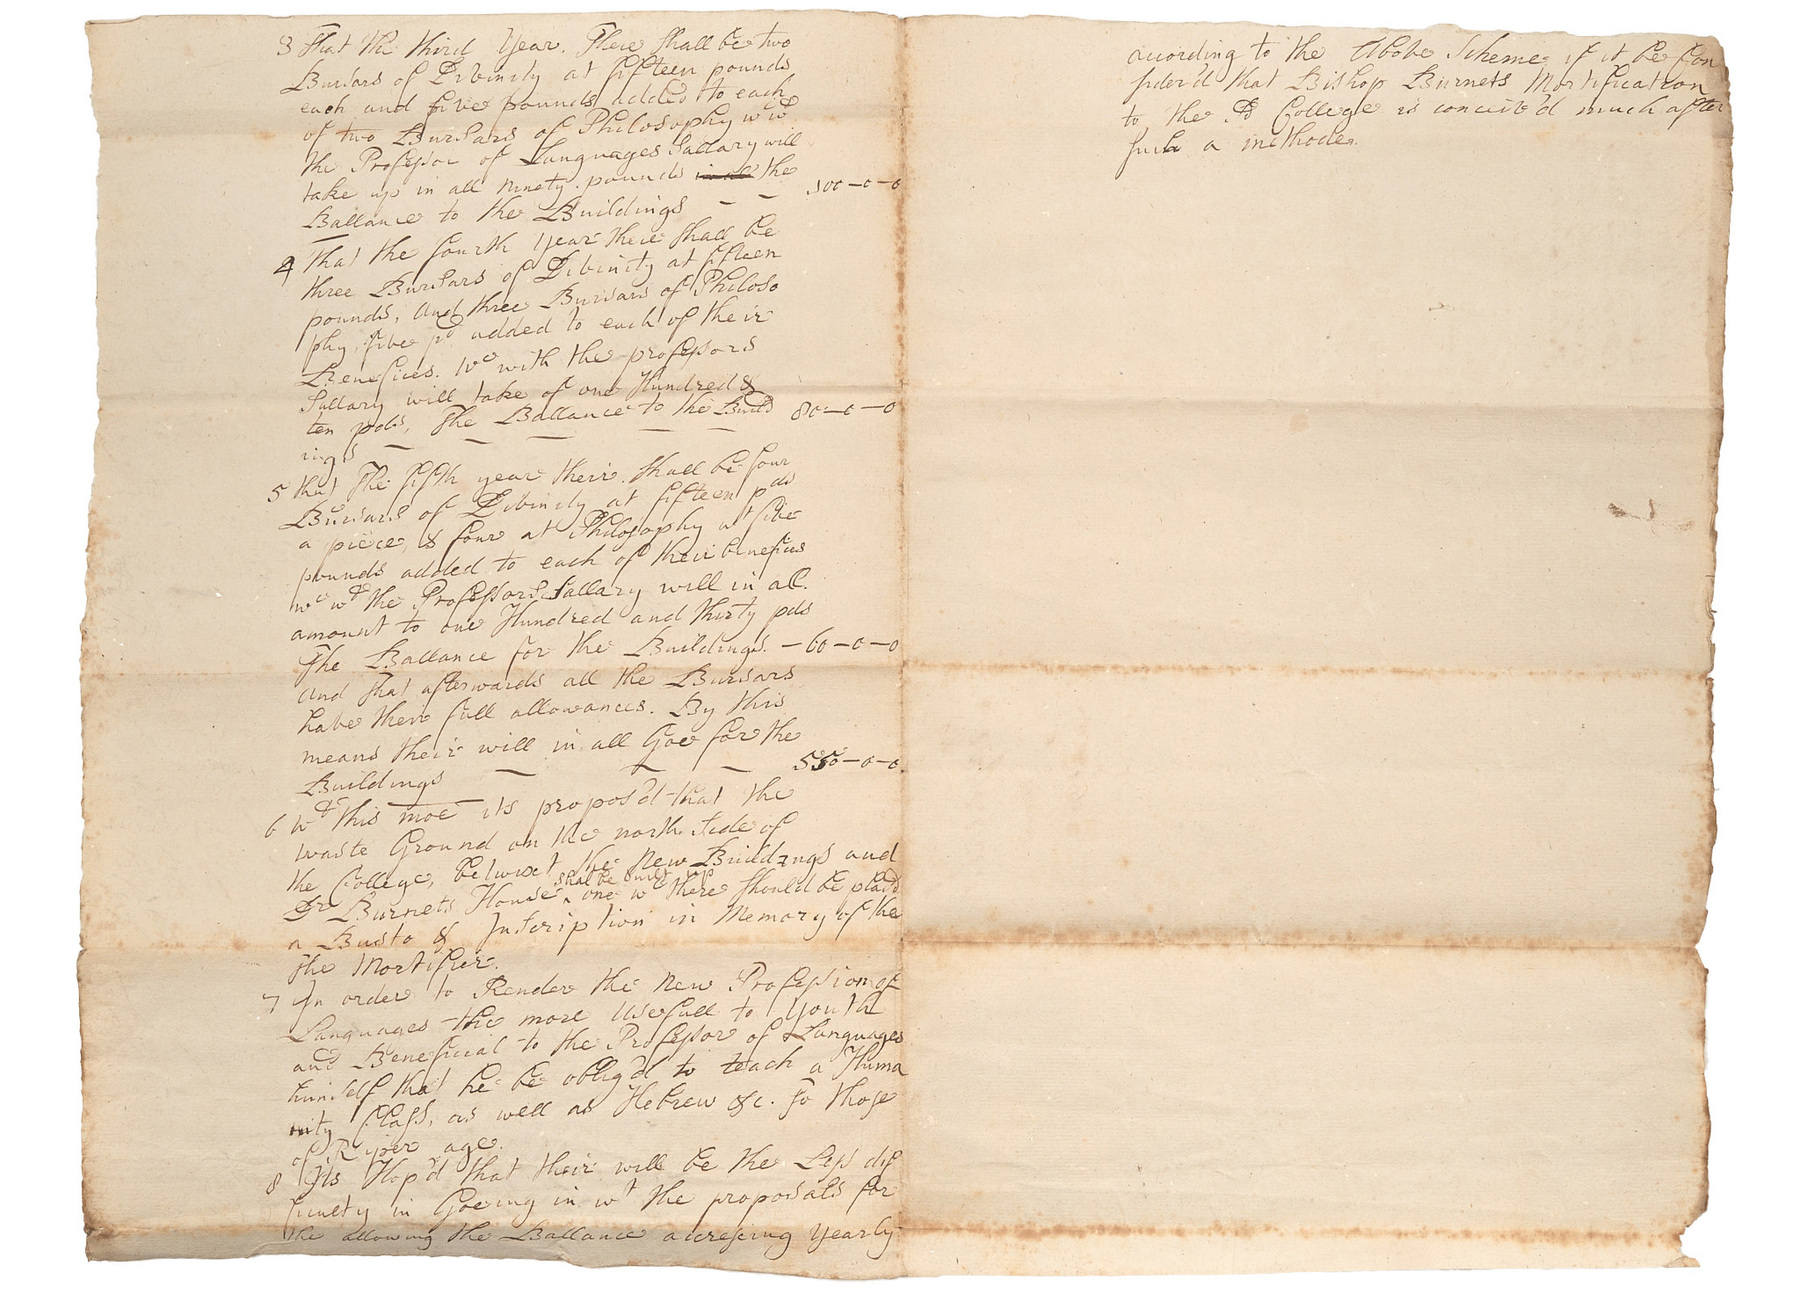 3 That the third Year. There shall be two
Bursars of Divinity at fifteen pounds
each and five pounds added to each
of two Bursars of Philosophy wc wt
the Professor of Languages Sallary will
take up in all Ninety pounds in all the
Ballance to the Buildings — — 100–0–0
4 That the fourth Year there shall be
three Bursars of Divinity at fifteen
pounds, and three Bursars of Philoso
phy, five pd added to each of their
Benefices. wc with the professors
Sallary will take of one Hundred &
ten pds, The Ballance to the Build 80–0–0
ings — — — — —
5 that The fifth year their shall be four
Bursars of Divinity at fifteen pds
a piece, & four at Philosophy wt five
pounds added to each of their benefices
wc wt the Professors Sallary will in all
amount to one Hundred and thirty pds
The Ballance for the Buildings. – 60–0–0
And that afterwards all the Bursars
have their full allowances. By this
means their will in all Goe for the
Buildings — — — 550–0–0
6 wt this moe its propos'd that the
waste Ground on the north side of
the College, betwixt the New Buildings and
shall be built up
Dr Burnets House ‸ one wc there should be plac'd
a Busto & Inscription in Memory of the
the Mortifier.
7 In order to Render the New Profession of
Languages the more Usefull to Youth
and Beneficial to the Professor of Languages
himself that he be oblig'd to teach a Huma
nity Class, as well as Hebrew &c. to those
of Riper age.
8 Its Hop'd that their will be the Less dif
ficulty in Goeing in wt the proposals for
the allowing the Ballance accressing Yearly
according to the Above Scheme, if it be Con
sider'd that Bishop Burnets Mortification
to the College is conceiv'd much after
such a methode.